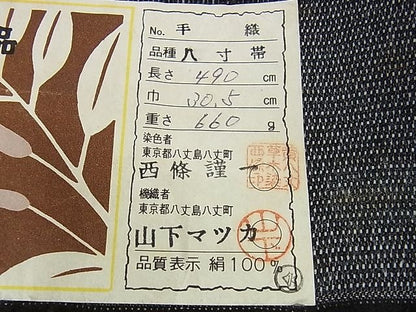 品
No. 手織
品種 八寸帯
長さ 490 cm
巾 30.5 cm
重さ 660 g
染色者
東京都八丈島八丈町
西條謹一
機織者
東京都八丈島八丈町
山下マツカ
品質表示 絹100%